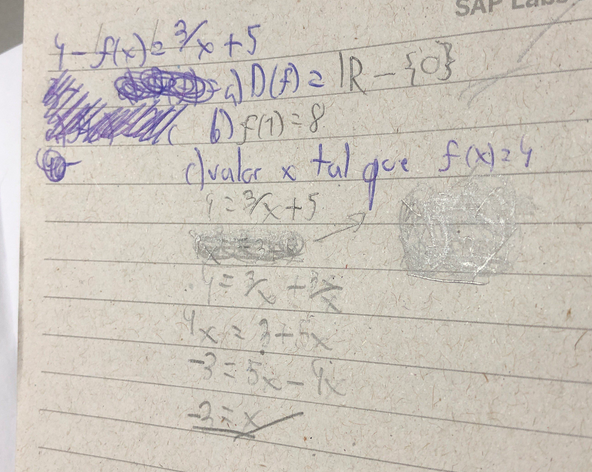 SAP Labs
4 - f(x) = 3/x + 5
a) D(f) = IR - {0}
b) f(1) = 8
c) valor x tal que f(x) = 4
4 = 3/x + 5
4 = 3/x + 5x/x
4x = 3 + 5x
-3 = 5x - 4x
-3 = x